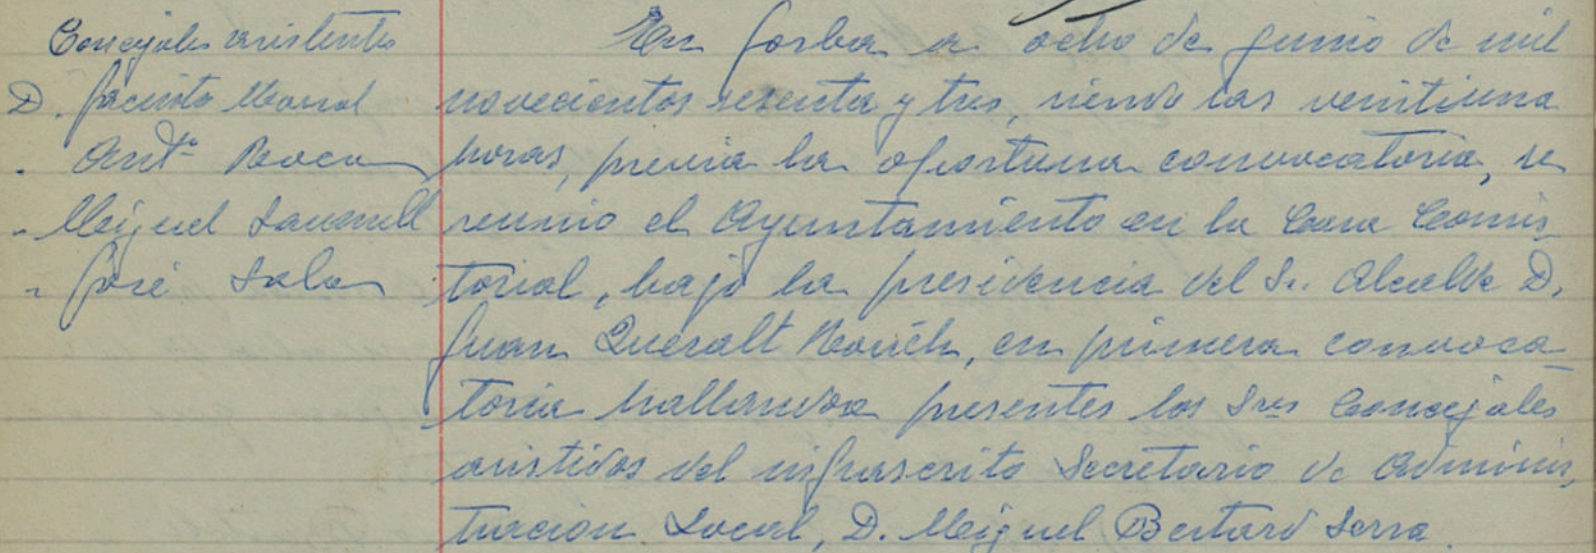 Concejales asistentes
D. Jacinto Marsal
. Antº Roca
. Miguel
. José Sala
En Jorba a ocho de junio de mil
novecientos sesenta y tres, siendo las veintiuna
horas, previa la oportuna convocatoria, se
reunio el Ayuntamiento en la Casa Consis
torial, bajo la presidencia del Sr. Alcalde D.
Juan Queralt, en primera convoca
toria hallandose presentes los Sres Concejales
asistidos del infrascrito Secretario de Adminis,
tracion Local, D. Miguel Bertard Serra.